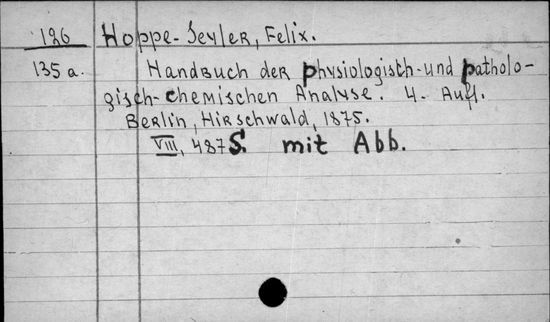 126 Hoppe-Seyler, Felix.
135 a. Handbuch der physiologisch- und patholo-
gisch-chemischen Analyse. 4. Aufl.
Berlin, Hirschwald, 1875.
VIII, 487 S. mit Abb.